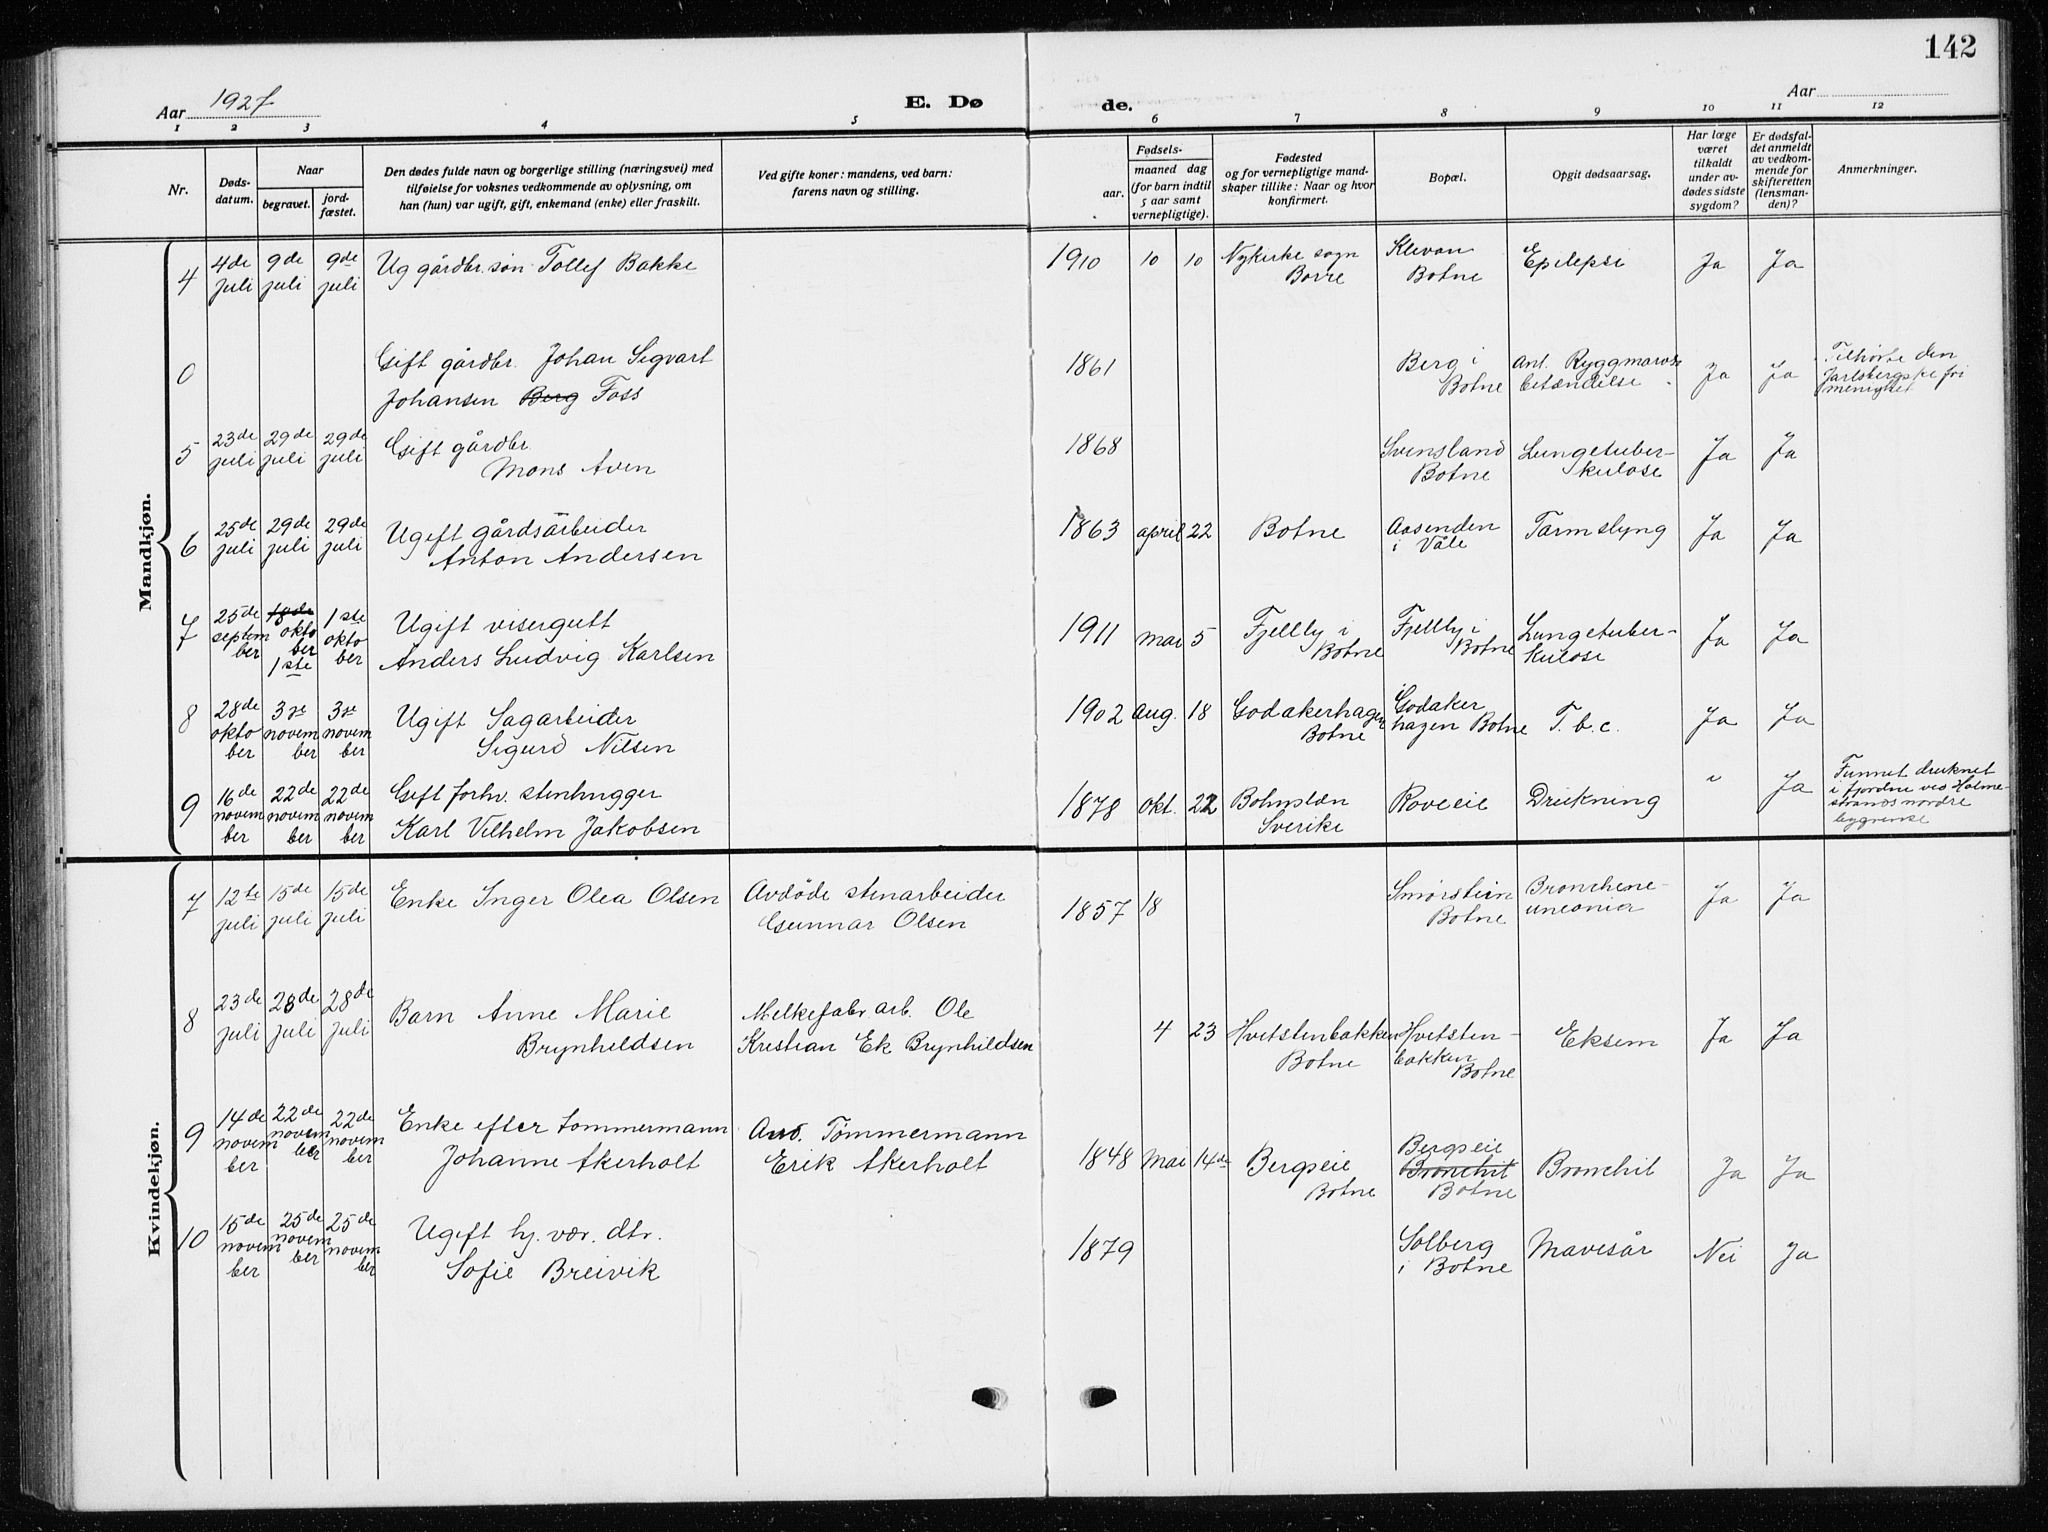 142
Aar 1927
E. Dø
de.
Aar
1 2 3 4 5 6 7 8 9 10 11 12
Nr.
Døds-
datum.
Naar
begravet.
jord-
fæstet.
Den dødes fulde navn og borgerlige stilling (næringsvei) med
tilføielse for voksnes vedkommende av oplysning, om
han (hun) var ugift, gift, enkemand (enke) eller fraskilt.
Ved gifte koner: mandens, ved barn:
farens navn og stilling.
Fødsels-
aar.
maaned dag
(for barn indtil
5 aar samt
vernepligtige).
Fødested
og for vernepligtige mand-
skaper tillike: Naar og hvor
konfirmert.
Bopæl.
Opgit dødsaarsag.
Har læge
været
tilkaldt
under av-
dødes sidste
sygdom?
Er dødsfal-
det anmeldt
av vedkom-
mende for
skifteretten
(lensman-
den)?
Anmerkninger.
Mandkjøn.
4
4de
juli
9de
juli
9de
juli
Ug gårdbr. søn Tollef Bakke
1910 10 10
Nykirke sogn
Borre
Klevan
Botne
Epilepsi
Ja Ja
0
Gift gårdbr. Johan Sigvart
Johansen Berg Foss
1861
Berg i
Botne
Ant. Ryggmarvs
betændelse.
Ja Ja
Tilhørte den
Jarlsbergske fri
menighet
5
23de
juli
29de
juli
29de
juli
Gift gårdbr
Mons Aven
1868
Svinsland
Botne
Lungetuber-
kulose
Ja Ja
6
25de
juli
29de
juli
29de
juli
Ugift gårdsarbeider
Anton Andersen
1863 april 22
Botne
Aasenden
i Våle
Tarmslyng
Ja Ja
7
25de
septem
ber
18de
okto
ber
1ste
1ste
okto
ber
Ugift visergutt
Anders Ludvig Karlsen
1911 mai 5
Fjellby i
Botne
Fjellby i
Botne
Lungetuber-
kulose
Ja Ja
8
28de
okto
ber
3je
novem
ber
3je
novem
ber
Ugift Sagarbeider
Sigurd Nilsen
1902 aug. 18
Godakerhagen
Botne
Godaker
hagen Botne
T. b. c.
Ja Ja
9
16de
novem
ber
22de
novem
ber
22de
novem
ber
Gift forhv. stenhugger
Karl Vilhelm Jakobsen
1878 okt. 22
Bohuslæn
Sverike
Roveeie
Drukning
" Ja
Funnet druknet
i fjorden ved Holme-
strands nordre
bygrense
Kvindekjøn.
7
12te
juli
15de
juli
15de
juli
Enke Inger Olea Olsen
Avdöde stenarbeider
Gunnar Olsen
1857 18
Smørstein
Botne
Bronchene-
umonia
Ja Ja
8
23de
juli
28de
juli
28de
juli
Barn Anne Marie
Brynhildsen
Melkefabr. arb. Ole
Kristian Ek Brynhildsen
4 23
Hvitstenbakken
Botne
Hvitsten-
bakken
Botne
Eksem
Ja Ja
9
14de
novem
ber
22de
novem
ber
22de
novem
ber
Enke efter tømmermann
Johanne Akerholt
Avd. Tömmermann
Erik Akerholt
1848 Mai 14de
Bergseie
Botne
Bergseie
Bronchit
Botne
Bronchit
Ja Ja
10
15de
novem
ber
25de
novem
ber
25de
novem
ber
Ugift hj. vær. dtr.
Sofie Breivik
1879
Solberg
i Botne
Mavesår
Nei Ja